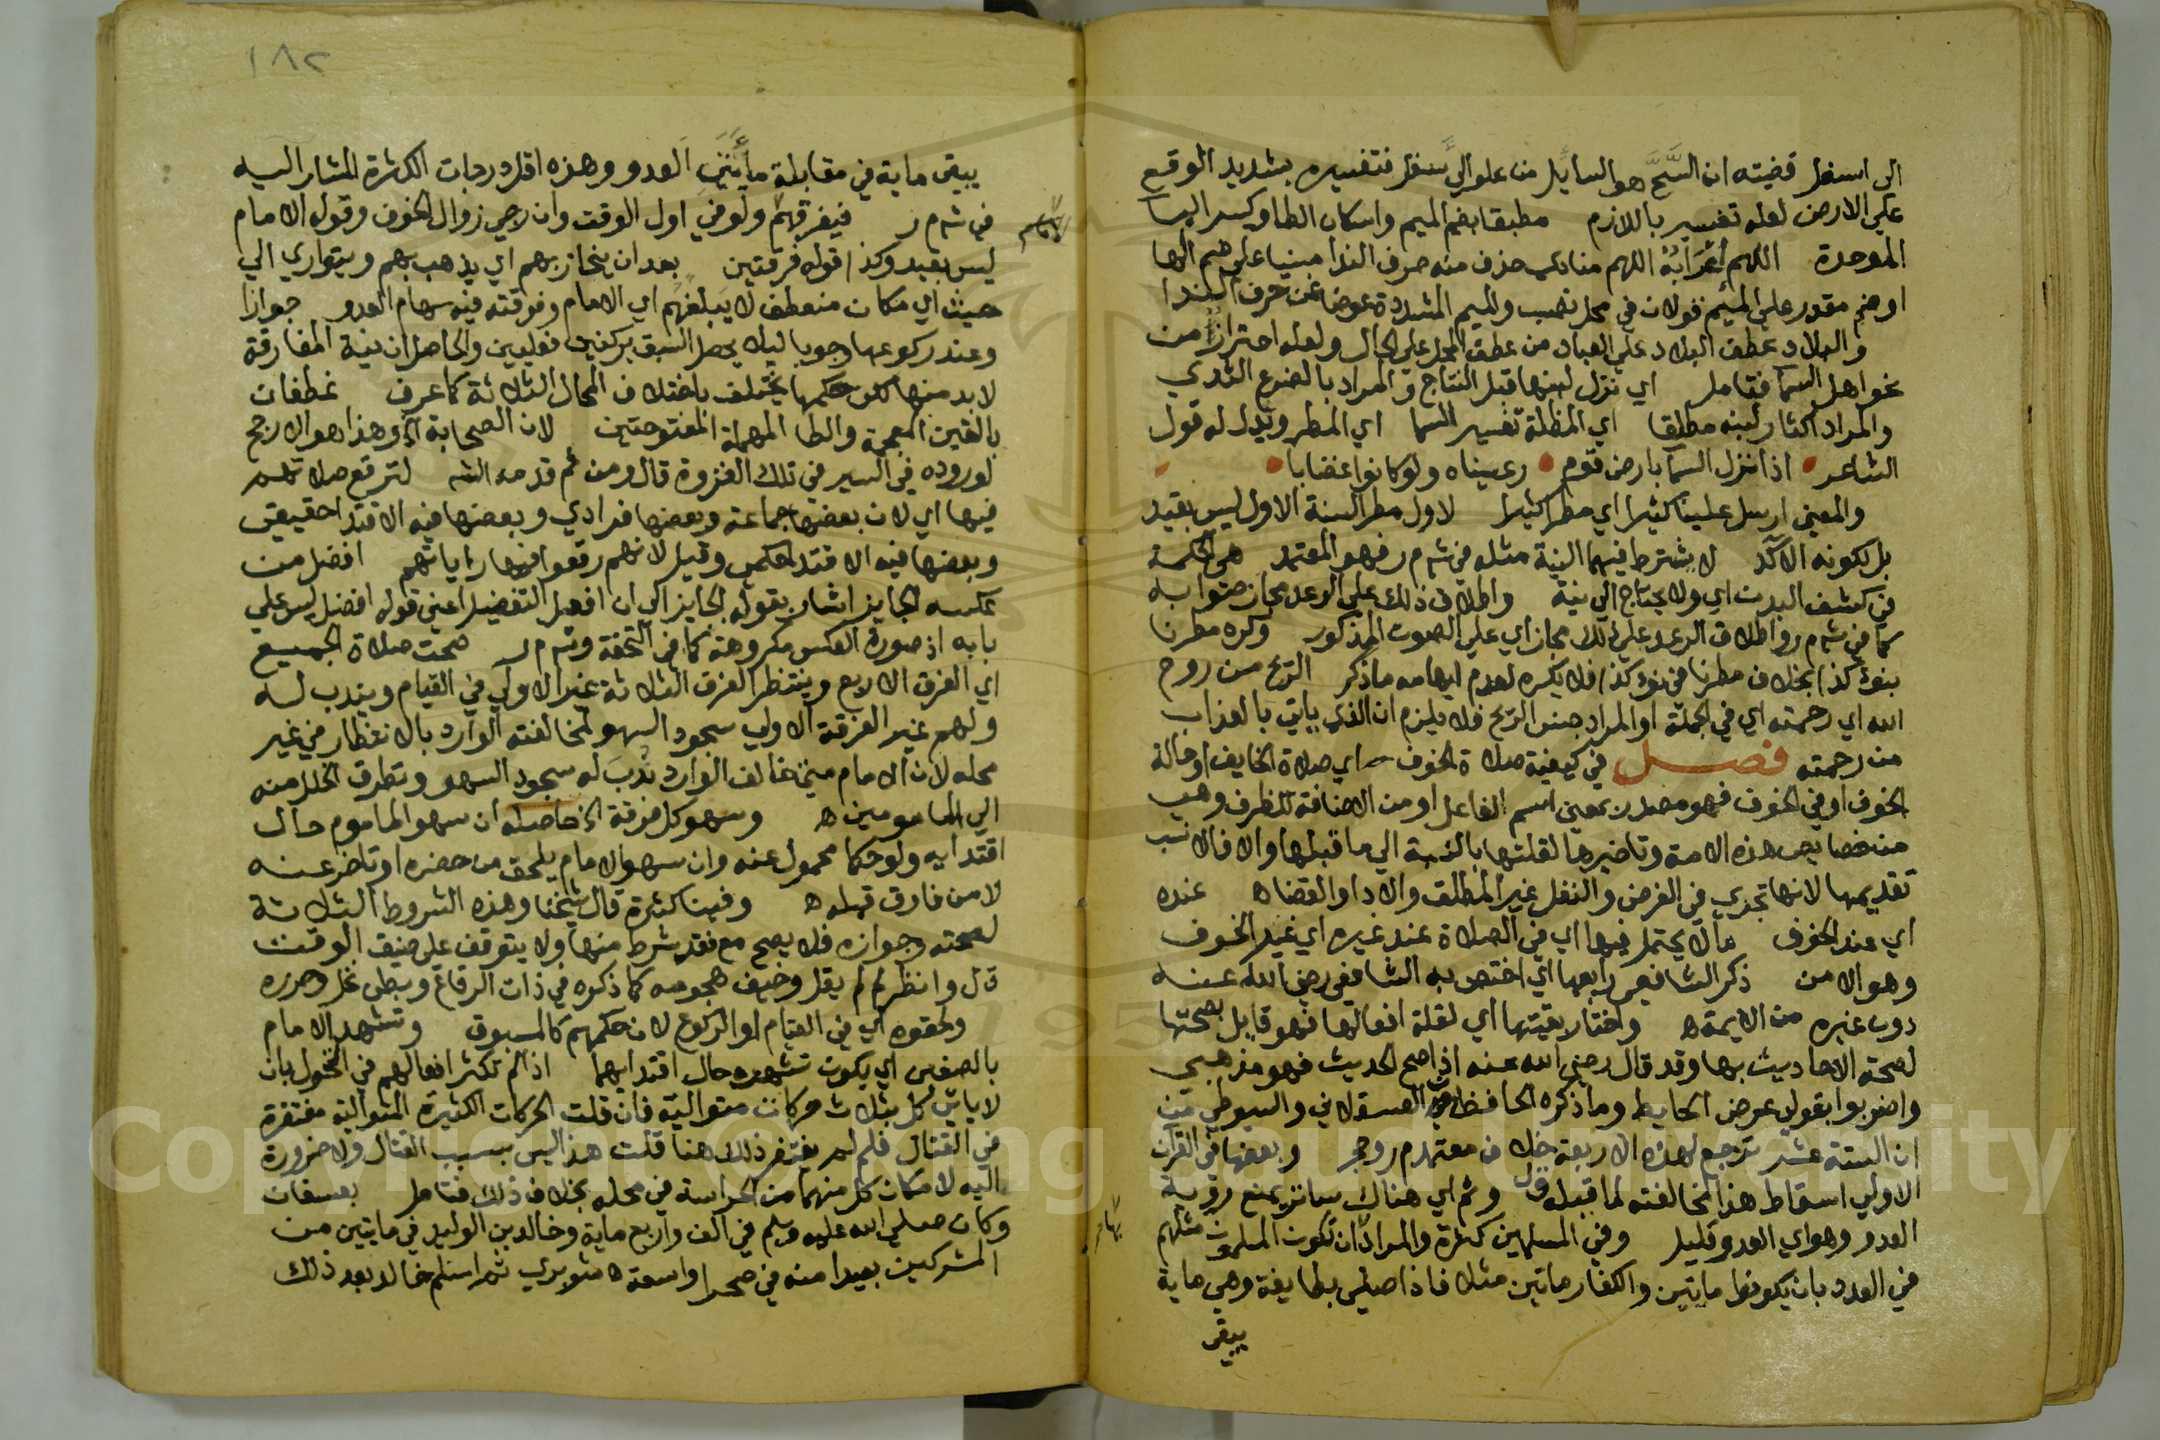 الى اسفل قضيته ان السَّحَّ هو السايل من علو الى سفل فتفسيره بشديد الوقع
على الارض لعله تفسير باللازم مطبقا بضم الميم واسكان الطا وكسر البا
الموحدة اللهم اللهم منادى حذف منه حرف الندا مبنيا على ضم الها
او ضم مقدر على الميم قولان في محل نصب والميم المشددة عوضا عن حرف الندا
والبلاد عطف البلاد على العباد من عطف المحل على الحال ولعله احترازا من
نحو اهل السما فتامل اي نزل لبنها قبل النتاج والمراد بالضرع الثدي
والمراد اكثار لبنه مطلقا اي المظلة تفسير السما اي المطر ويدل له قول
الشاعر اذا نزل السما بارض قوم رعيناه ولو كانوا غضابا
والمعنى ارسل علينا كثيرا اي مطرا كثيرا لاول مطر السنة الاول ليس بقيد
بل لكونه الآكد لا يشترط فيهما النية مثله في شم ر فهو المعتمد هي الحكمة
في كشف البدن اي ولا يحتاج الى نية واطلاق ذلك على الرعد مجاز صوابه
كما في شم ر واطلاق الرعد على ذلك مجاز اي على الصوت المذكور وكره مطرنا
بنوء كذا بخلاف مطرنا في نوء كذا فلا يكره لعدم ايهامه ما ذكر الريح من روح
الله اي رحمته اي في الجملة او المراد جنس الريح فلا يلزم ان الذي ياتي بالعذاب
من رحمته فصل في كيفية صلاة الخوف اي صلاة الخايف او حالة
الخوف او في الخوف فهو مصدر بمعنى اسم الفاعل او من الاضافة للظرف وهي
من خصايص هذه الامة وتاخيرها لقلتها بالنسبة الى ما قبلها والا فالانسب
تقديمها لانها تجري في الفرض والنفل غير المطلق والادا والقضا ه عنده
اي عند الخوف ما لا يحتمل فيها اي في الصلاة عند غيره اي غير الخوف
وهو الامن ذكر الشافعي رابعها اي اختص به الشافعي رضي الله عنه
دون غيره من الايمة ه واختار بقيتها اي لقلة افعالها فهو قايل بصحتها
لصحة الاحاديث بها وقد قال رضي الله عنه اذا صح الحديث فهو مذهبي
واضربوا بقولي عرض الحايط وما ذكره الحافظ العسقلاني والسيوطي من
ان الستة عشر ترجع لهذه الاربعة خلاف معتمد م ر وحجر وبعضها في القران
الاولى اسقاط هذا لمخالفته لما قبله وثم اي هناك ساتر يمنع روية
العدو وهو اي العدو قليل وفي المسلمين كثرة والمراد ان تكون المسلمون مثلهم
في العدد بان يكونوا مايتين والكفار مايتين مثلا فاذا صلى بطايفة وهي ماية
يبقى
١٨٢
يبقى ماية في مقابلة مايتي العدو وهذه اقل درجات الكثرة المشار اليه
في شم ر فيفرقهم ولو في اول الوقت وان رجي زوال الخوف وقوله الامام
ليس بقيد وكذا قوله فرقتين بعد ان ينحاز بهم اي يذهب بهم ويتوارى الى
حيث اي مكان منعطف لا يبلغهم اي الامام وفرقته فيه سهام العدو جوازا
وعند ركوعها وجوبا ليلا يحصل السبق بركنين فعليين والحاصل ان نية المفارقة
لا بد منها لكن حكمها يختلف باختلاف المحال الثلاثة كما عرف غطفان
بالغين المعجمة والطا المهملة المفتوحتين لان الصحابة الخ وهذا هو الارجح
لوروده في السير في تلك الغزوة قال ومن ثم قدمه الشه لترقع صلاتهم
فيها اي لان بعضها جماعة وبعضها فرادي وبعضها فيه الاقتدا حقيقي
وبعضها فيه الاقتدا حكمي وقيل لانهم رقعوا فيها راياتهم افضل من
عكسه الجايز اشار بقوله الجايز الى ان افعل التفضيل اعني قوله افضل ليس على
بابه اذ صورة العكس مكروهة كما في التحفة وشم ر صحت صلاة الجميع
اي الفرق الاربع وينتظر الفرق الثلاثة غير الاولى في القيام ويندب له
ولهم غير الفرقة الاولى سجود السهو لمخالفته الوارد بالانتظار في غير
محله لان الامام متى خالف الوارد ندب له سجود السهو وتطرق الخلل منه
الى المامومين ه وسهو كل فرقة الخ حاصله ان سهو الماموم حال
اقتدايه ولو حكما محمول عنه وان سهو الامام يلحق من حضره او تاخر عنه
لا من فارق قبله ه وفينا كثرة قال شيخنا وهذه الشروط الثلاثة
لصحته وجوازه فلا يصح مع فقد شرط منها ولا يتوقف على ضيق الوقت
قال وانظر لم لم يقل وخيف هجومه كما ذكره في ذات الرقاع وبطن نخل وحرره
ولحقوه اي في القيام او الركوع لان حكمهم كالمسبوق وتشهد الامام
بالصفين اي يكون تشهده حال اقتدايهما اذا لم تكثر افعالهم في التحول بان
لا ياتي كل بثلاث حركات متوالية فان قلت الحركات الكثيرة المتوالية مغتفرة
في القتال فلم لم يغتفر ذلك هنا قلت هذا ليس بسبب القتال ولا ضرورة
اليه لامكان كل منهما من الحراسة في محله بخلاف ذلك فتامل بعسفان
وكان صلى الله عليه وسلم في الف واربع ماية وخالد بن الوليد في مايتين من
المشركين بعيدا منه في صحرا واسعة ه شوبري ثم اسلم خالد بعد ذلك